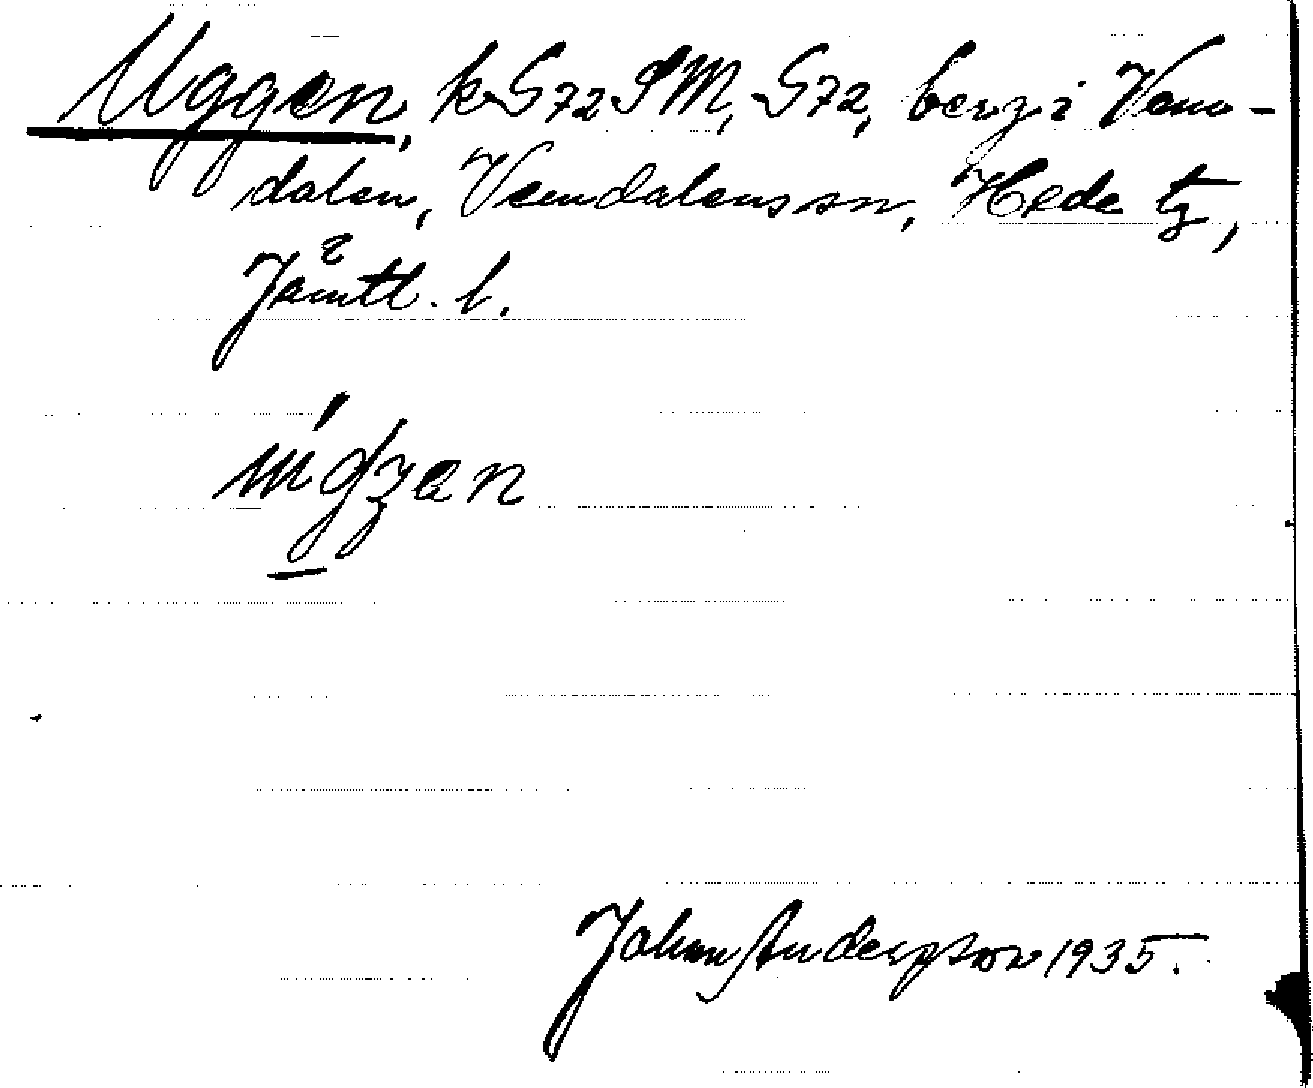 Uggen, k S72 SM, S72, berg i Vem-
dalen, Vemdalens sn, Hede tg,
Jämtl. l.
Johan Anderson 1935.